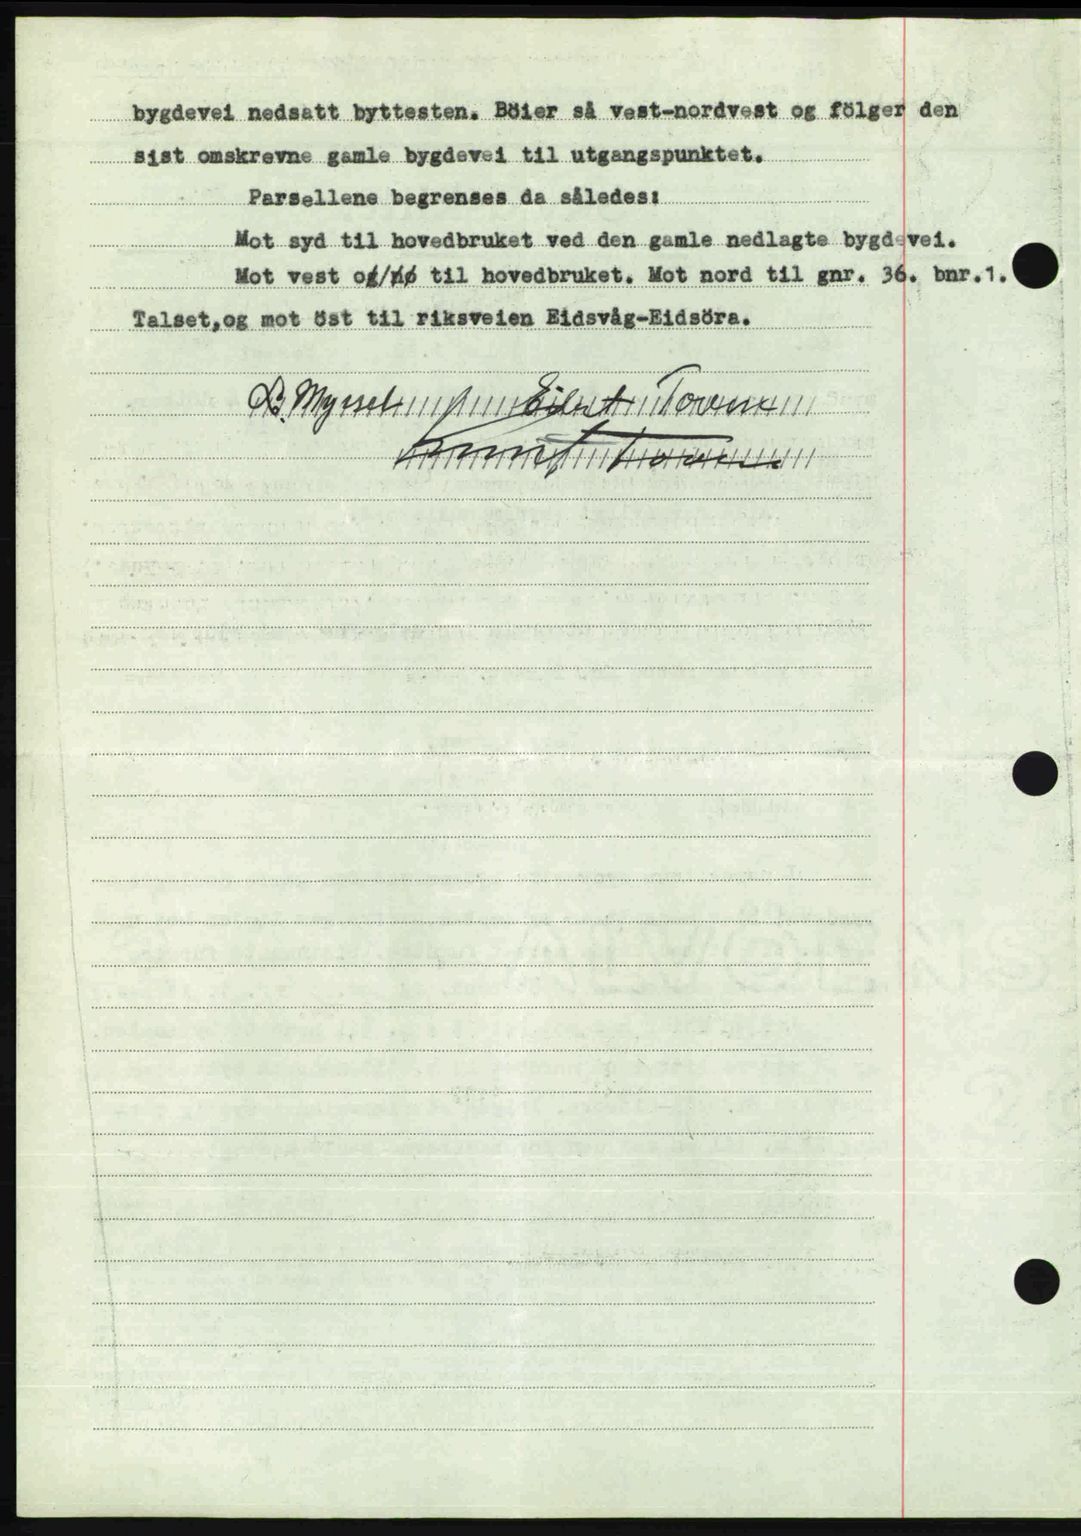 bygdevei nedsatt byttesten. Böier så vest-nordvest og fölger den
sist omskrevne gamle bygdevei til utgangspunktet.
Parsellene begrenses da således:
Mot syd til hovedbruket ved den gamle nedlagte bygdevei.
Mot vest til hovedbruket. Mot nord til gnr. 36. bnr.1.
Talset,og mot öst til riksveien Eidsvåg-Eidsöra.